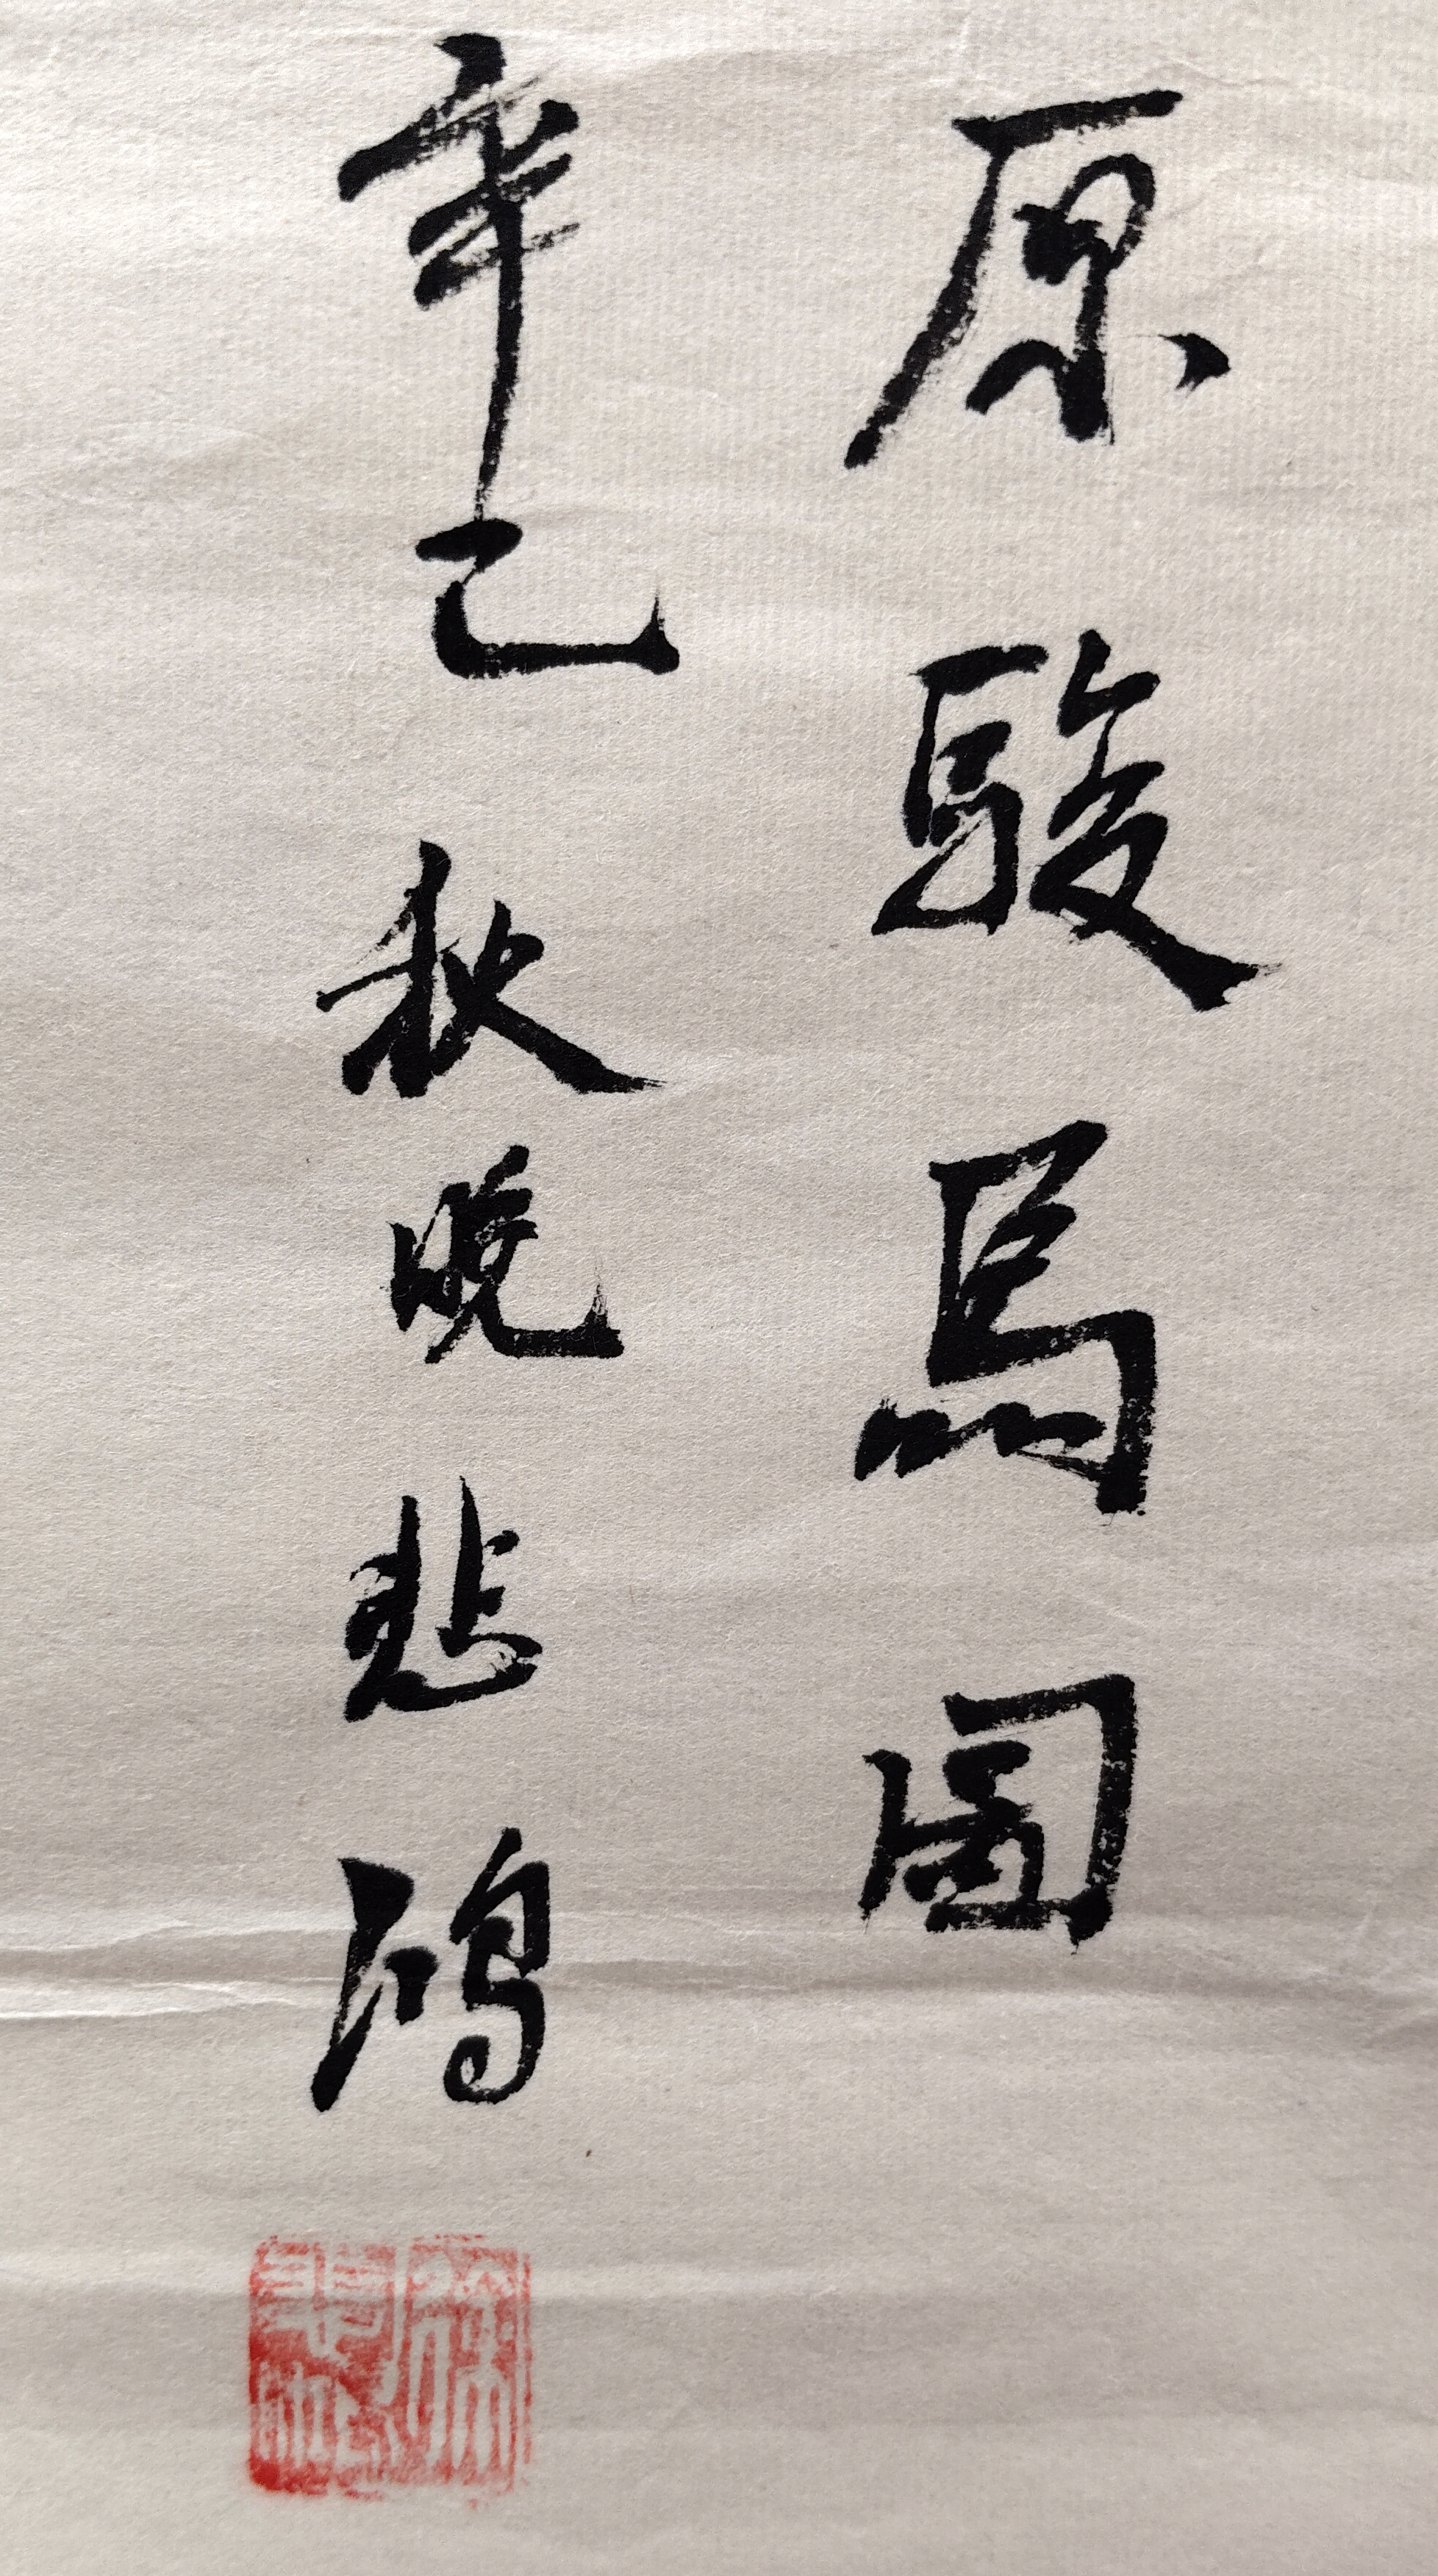 原駿馬圖
辛巳秋晚悲鴻
徐悲鴻